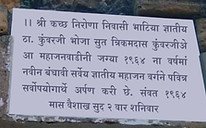 ।। श्री कच्छ निरोणा निवासी भाटिया ज्ञातीय
ठा. कुंवरजी भोजा सुत त्रिकमदास कुंवरजीअे
आ महाजनवाडीनी जग्या १९६४ ना वर्षमां
नवीन बंधावी सर्वेय ज्ञातीय महाजन वर्गने पवित्र
सर्वोपयोगार्थे अर्पण करी छे. संवत १९६४
मास वैशाख सुद २ वार शनिवार